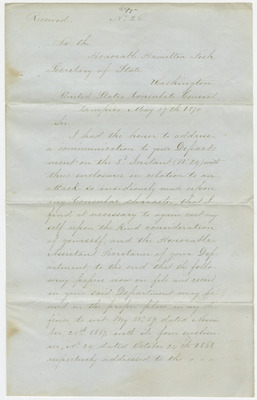 Received.
No 26
To the
Honorable Hamilton Fish
Secretary of State
Washington
United States Consulate General
May 17th 1870
Sir
I had the honor to address
a communication to your Depart-
ment on the Instant (No 24) with
three enclosures in relation to an
attack so insidiously made upon
my Consular character, that I
find it necessary to again cast my
self upon the kind consideration
of yourself, and the Honorable
Assistant Secretaries of your Dep-
artment to the end that the follo-
wing papers now on file and record
in your said Department may be
used in the proper place in my de-
fence, to wit My No 29 dated Novem-
ber 1867, with its four enclosures
No 24 dated October 1868
respectively addressed to the